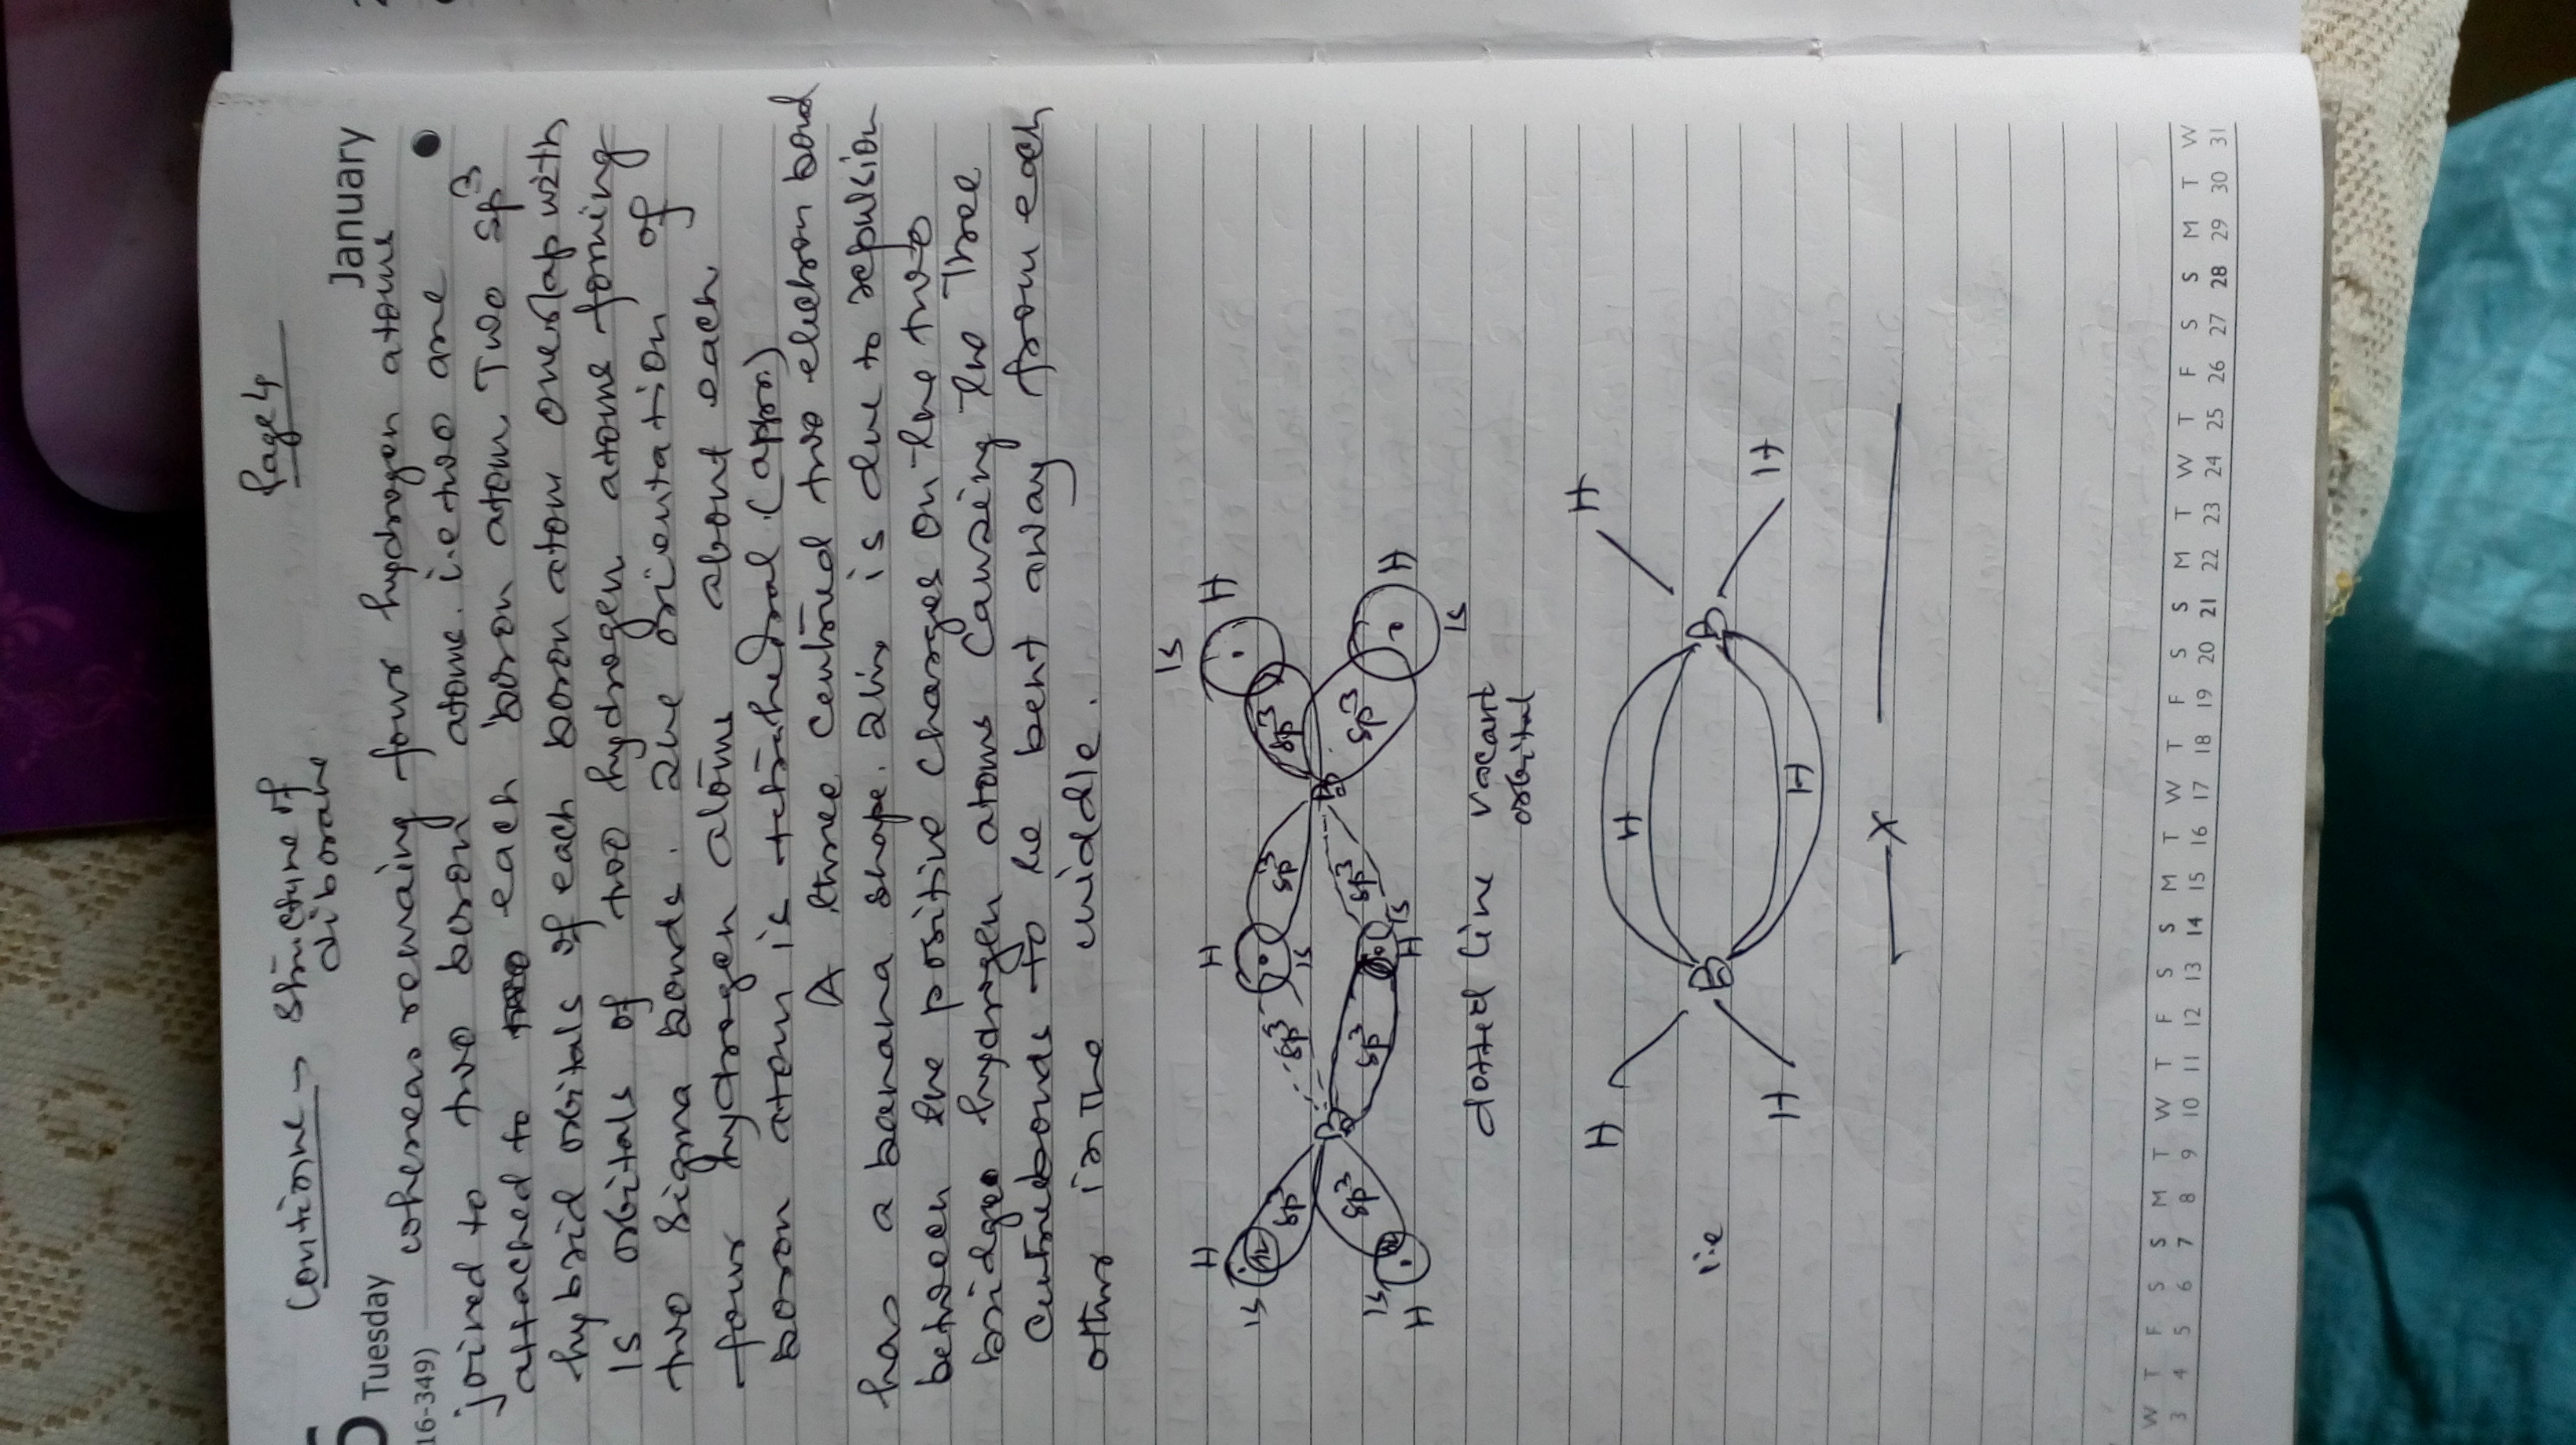 Page 4
Continue → Structure of
diborane
6 Tuesday January
(16-349)
whereas remaing four hydrogen atoms
joined to two boron atoms. i.e two are
attached to each boron atom. Two sp3
hybrid orbitals of each boron atom overlap with
1s orbitals of two hydrogen atoms forming
two sigma bonds. The orientation of
four hydrogen atoms about each
boron atom is tetrahedral (appr.)
A three centred two electron bond
has a banana shape. This is due to repulsion
between the positive charges on the two
bridges hydrogen atoms causing the three
centrebonds to be bent away from each
other in the middle.
H 1s sp3 B sp3 1s H sp3 B sp3 1s H
1s H sp3 sp3 1s H sp3 sp3 1s H
dotted line vacant
orbital
i.e
H H H
B B
H H H
X
W T F S S M T W T F S S M T W T F S S M T W T F S S M T W
3 4 5 6 7 8 9 10 11 12 13 14 15 16 17 18 19 20 21 22 23 24 25 26 27 28 29 30 31